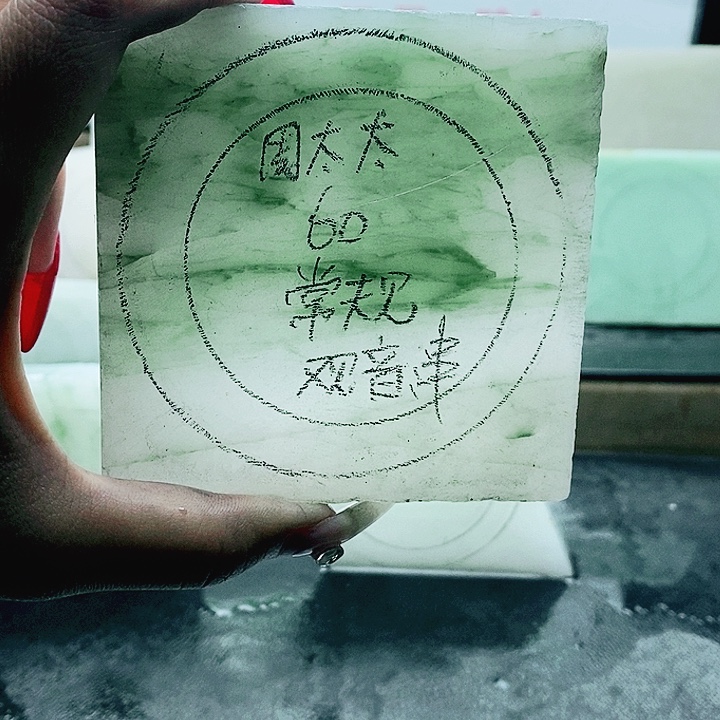 太太
60
常规
观音串